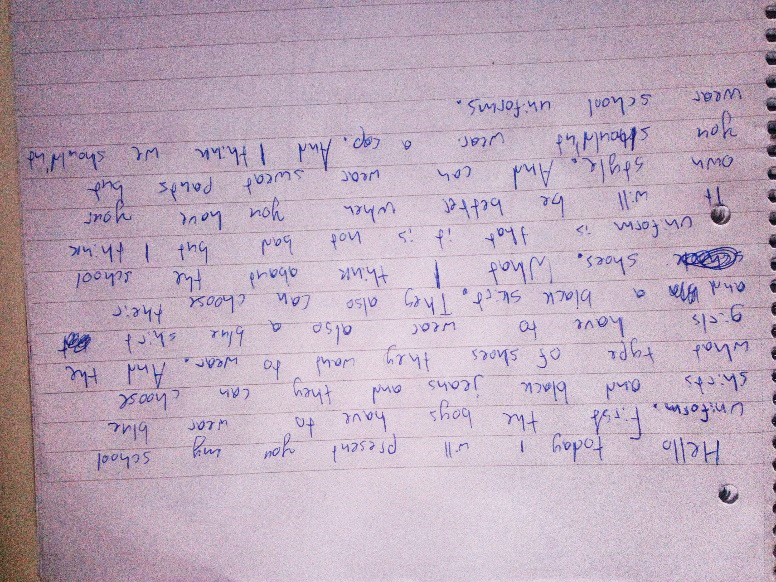 Hello today I will present you my school
uniform. First the boys have to wear blue
shirts and black jeans and they can choose
what type of shoes they want to wear. And the
girls have to wear also a blue shirt
and a black skirt. They also can choose their
shoes. What I think about the school
uniform is that it is not bad but I think
It will be better when you have your
own style. And can wear sweat pants but
you should'nt wear a cap. And I think we should'nt
wear school uniforms.